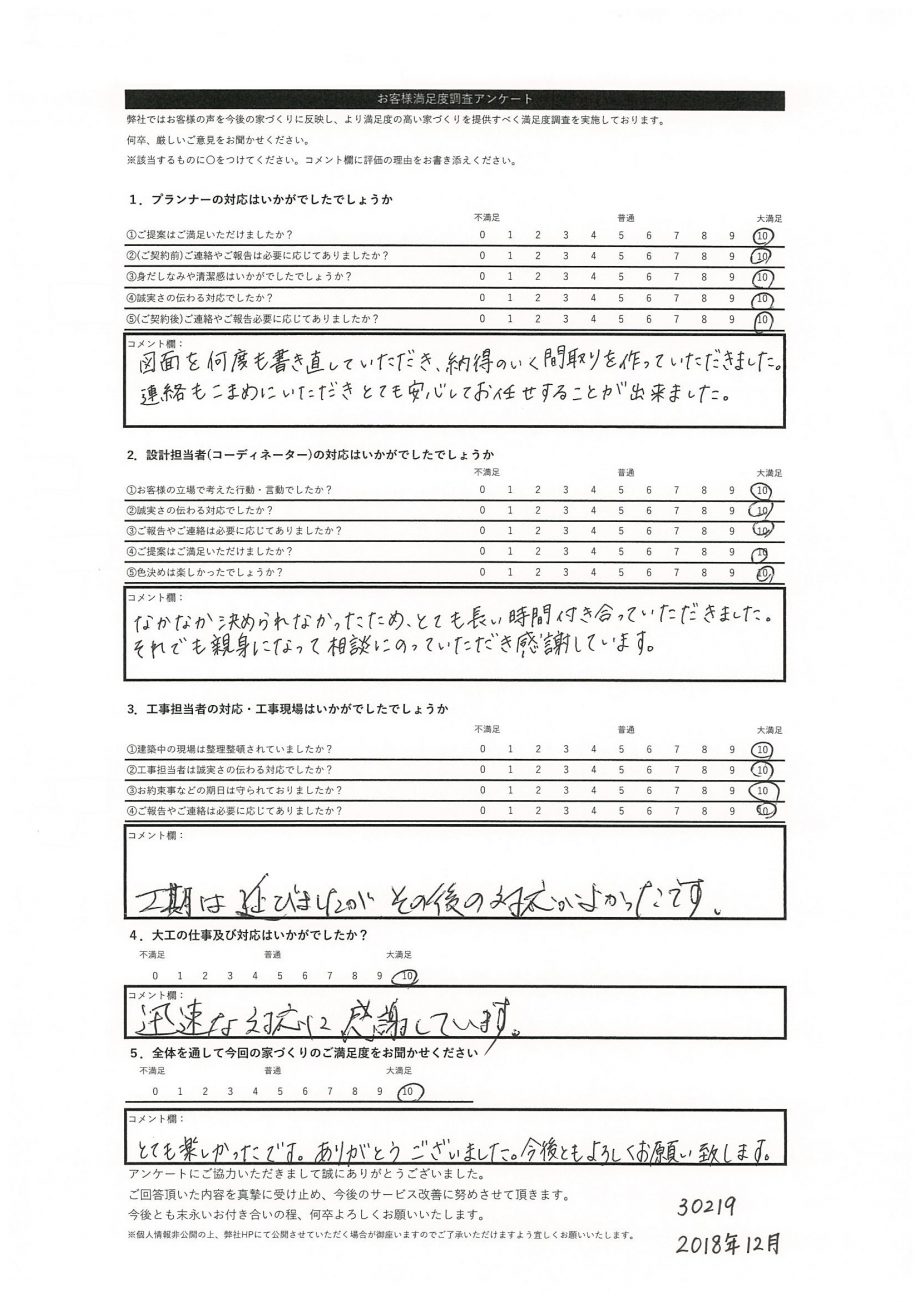 お客様満足度調査アンケート
弊社ではお客様の声を今後の家づくりに反映し、より満足度の高い家づくりを提供すべく満足度調査を実施しております。
何卒、厳しいご意見をお聞かせください。
※該当するものに〇をつけてください。コメント欄に評価の理由をお書き添えください。
1．プランナーの対応はいかがでしたでしょうか
不満足 普通 大満足
①ご提案はご満足いただけましたか？ 0 1 2 3 4 5 6 7 8 9 10
②(ご契約前)ご連絡やご報告は必要に応じてありましたか？ 0 1 2 3 4 5 6 7 8 9 10
③身だしなみや清潔感はいかがでしたでしょうか？ 0 1 2 3 4 5 6 7 8 9 10
④誠実さの伝わる対応でしたか？ 0 1 2 3 4 5 6 7 8 9 10
⑤(ご契約後)ご連絡やご報告必要に応じてありましたか？ 0 1 2 3 4 5 6 7 8 9 10
コメント欄：
図面を何度も書き直していただき、納得のいく間取りを作っていただきました。
連絡もこまめにいただきとても安心してお任せすることが出来ました。
2．設計担当者(コーディネーター)の対応はいかがでしたでしょうか
不満足 普通 大満足
①お客様の立場で考えた行動・言動でしたか？ 0 1 2 3 4 5 6 7 8 9 10
②誠実さの伝わる対応でしたか？ 0 1 2 3 4 5 6 7 8 9 10
③ご報告やご連絡は必要に応じてありましたか？ 0 1 2 3 4 5 6 7 8 9 10
④ご提案はご満足いただけましたか？ 0 1 2 3 4 5 6 7 8 9 10
⑤色決めは楽しかったでしょうか？ 0 1 2 3 4 5 6 7 8 9 10
コメント欄：
なかなか決められなかったため、とても長い時間付き合っていただきました。
それでも親身になって相談にのっていただき感謝しています。
3．工事担当者の対応・工事現場はいかがでしたでしょうか
不満足 普通 大満足
①建築中の現場は整理整頓されていましたか？ 0 1 2 3 4 5 6 7 8 9 10
②工事担当者は誠実さの伝わる対応でしたか？ 0 1 2 3 4 5 6 7 8 9 10
③お約束事などの期日は守られておりましたか？ 0 1 2 3 4 5 6 7 8 9 10
④ご報告やご連絡は必要に応じてありましたか？ 0 1 2 3 4 5 6 7 8 9 10
コメント欄：
工期は延びましたが その後の対応がよかったです。
4．大工の仕事及び対応はいかがでしたか？
不満足 普通 大満足
0 1 2 3 4 5 6 7 8 9 10
コメント欄：
迅速な対応に感謝しています。
5．全体を通して今回の家づくりのご満足度をお聞かせください
不満足 普通 大満足
0 1 2 3 4 5 6 7 8 9 10
コメント欄：
とても楽しかったです。ありがとうございました。今後ともよろしくお願い致します。
アンケートにご協力いただきまして誠にありがとうございました。
ご回答頂いた内容を真摯に受け止め、今後のサービス改善に努めさせて頂きます。
今後とも末永いお付き合いの程、何卒よろしくお願いいたします。
※個人情報非公開の上、弊社HPにて公開させていただく場合が御座いますのでご了承いただけますよう宜しくお願いいたします。
30219
2018年12月